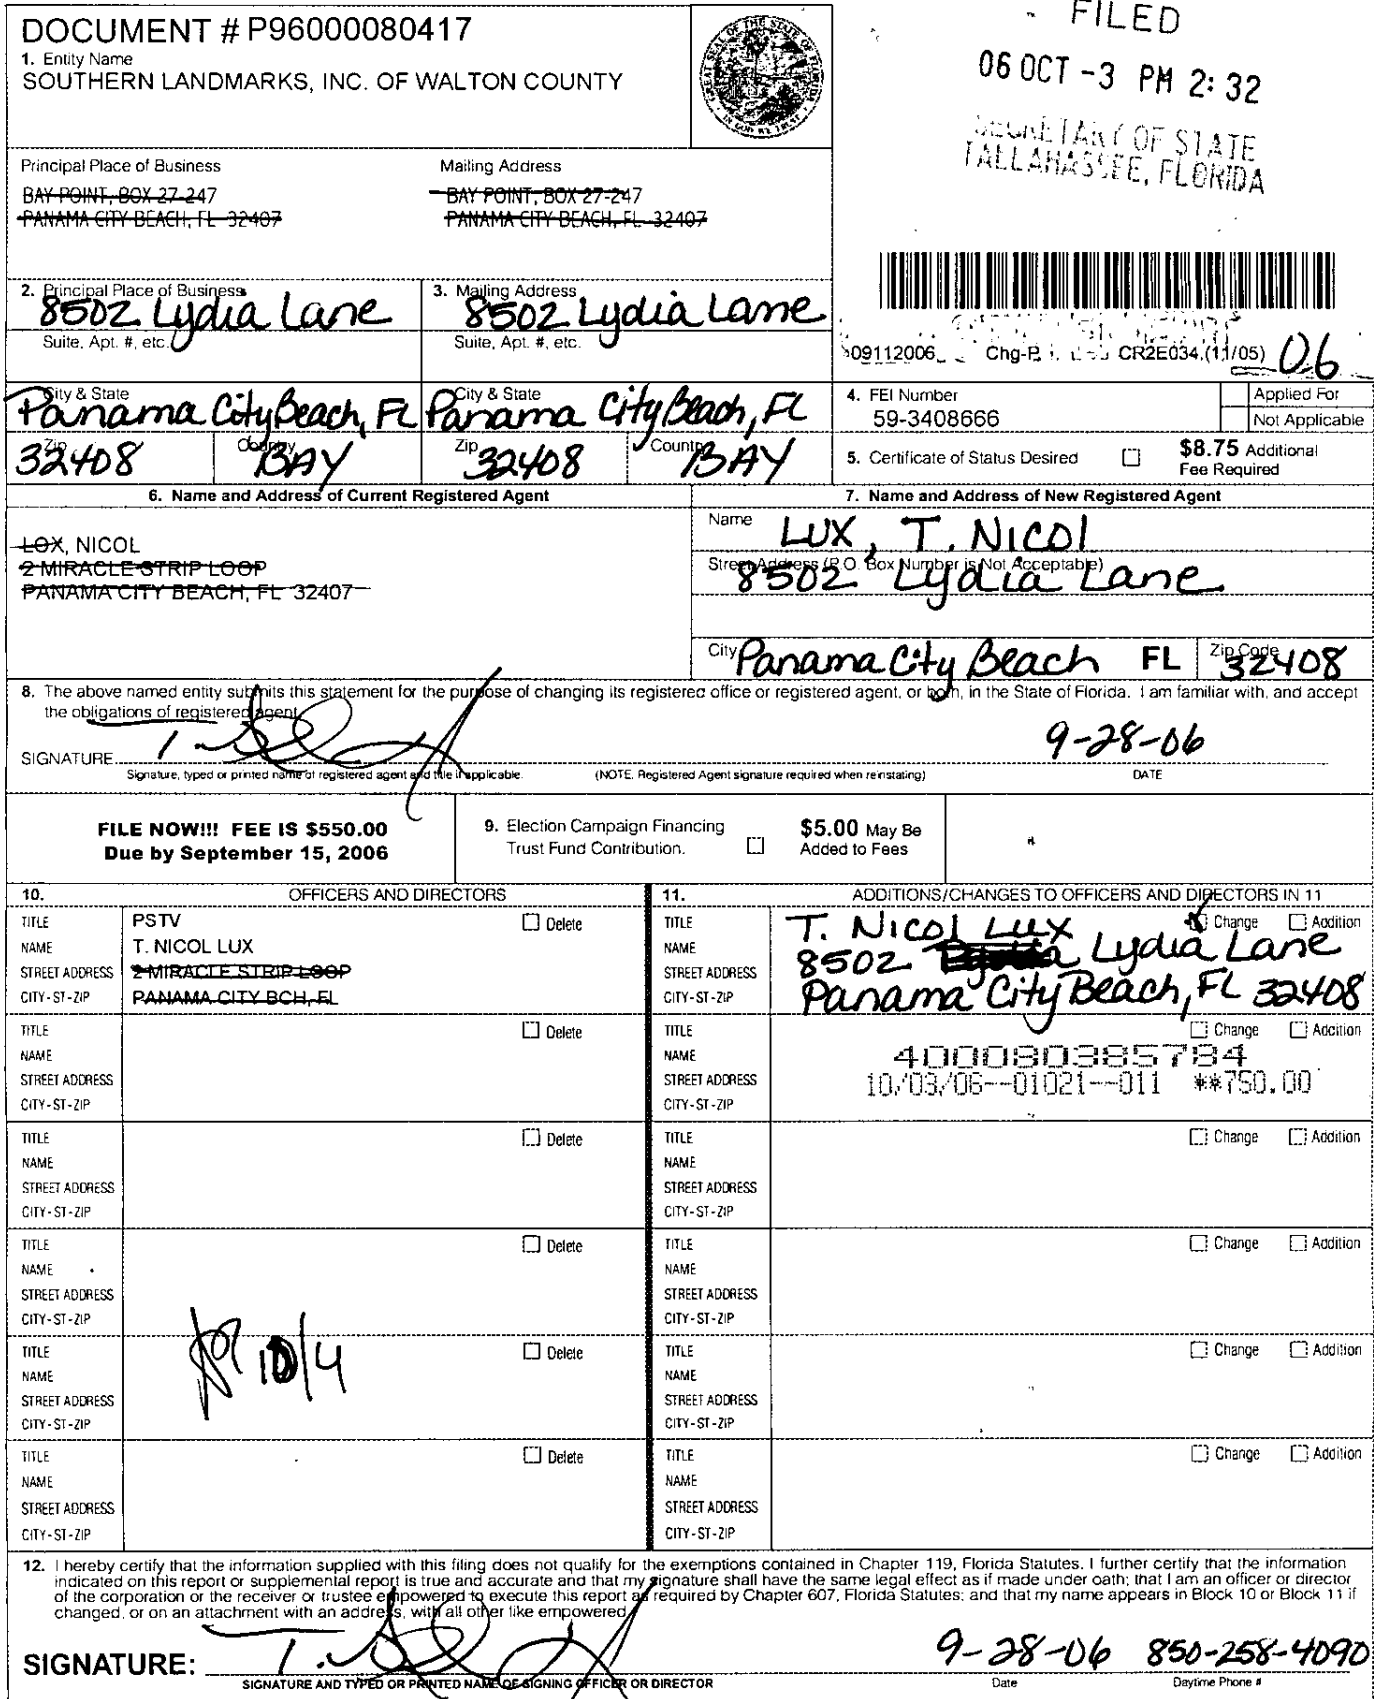 DOCUMENT # P96000080417
1. Entity Name
SOUTHERN LANDMARKS, INC. OF WALTON COUNTY
FILED
06 OCT -3 PM 2:32
SECRETARY OF STATE
TALLAHASSEE, FLORIDA
Principal Place of Business
BAY POINT, BOX 27-247
PANAMA CITY BEACH, FL 32407
Mailing Address
BAY POINT, BOX 27-247
PANAMA CITY BEACH, FL 32407
2. Principal Place of Business
8502 Lydia Lane
Suite, Apt. #, etc.
3. Mailing Address
8502 Lydia Lane
Suite, Apt. #, etc.
09112006 Chg-P CR2E034 (11/05) 06
City & State
Panama City Beach, FL
City & State
Panama City Beach, FL
Zip
32408
Country
BAY
Zip
32408
Country
BAY
4. FEI Number
59-3408666
Applied For
Not Applicable
5. Certificate of Status Desired
$8.75 Additional
Fee Required
6. Name and Address of Current Registered Agent
LOX, NICOL
2 MIRACLE STRIP LOOP
PANAMA CITY BEACH, FL 32407
7. Name and Address of New Registered Agent
Name
LUX, T. NICOl
Street Address (P.O. Box Number is Not Acceptable)
8502 Lydia Lane
City Panama City Beach FL Zip Code 32408
8. The above named entity submits this statement for the purpose of changing its registered office or registered agent, or both, in the State of Florida. I am familiar with, and accept
the obligations of registered agent.
SIGNATURE
9-28-06
Signature, typed or printed name of registered agent and title if applicable.
(NOTE, Registered Agent signature required when reinstating)
DATE
FILE NOW!!! FEE IS $550.00
Due by September 15, 2006
9. Election Campaign Financing
Trust Fund Contribution.
$5.00 May Be
Added to Fees
10. OFFICERS AND DIRECTORS
TITLE PSTV Delete
NAME T. NICOL LUX
STREET ADDRESS 2 MIRACLE STRIP LOOP
CITY-ST-ZIP PANAMA CITY BCH, FL
11. ADDITIONS/CHANGES TO OFFICERS AND DIRECTORS IN 11
TITLE Change Addition
NAME T. Nicol Lux
STREET ADDRESS 8502 Lydia Lane
CITY-ST-ZIP Panama City Beach, FL 32408
TITLE Delete
NAME
STREET ADDRESS
CITY-ST-ZIP
TITLE Change Addition
NAME 400080385784
STREET ADDRESS 10/03/06--01021--011 **750.00
CITY-ST-ZIP
TITLE Delete
NAME
STREET ADDRESS
CITY-ST-ZIP
TITLE Change Addition
NAME
STREET ADDRESS
CITY-ST-ZIP
TITLE Delete
NAME
STREET ADDRESS
CITY-ST-ZIP
TITLE Change Addition
NAME
STREET ADDRESS
CITY-ST-ZIP
TITLE Delete
NAME 10/4
STREET ADDRESS
CITY-ST-ZIP
TITLE Change Addition
NAME
STREET ADDRESS
CITY-ST-ZIP
TITLE Delete
NAME
STREET ADDRESS
CITY-ST-ZIP
TITLE Change Addition
NAME
STREET ADDRESS
CITY-ST-ZIP
12. I hereby certify that the information supplied with this filing does not qualify for the exemptions contained in Chapter 119, Florida Statutes. I further certify that the information
indicated on this report or supplemental report is true and accurate and that my signature shall have the same legal effect as if made under oath; that I am an officer or director
of the corporation or the receiver or trustee empowered to execute this report as required by Chapter 607, Florida Statutes; and that my name appears in Block 10 or Block 11 if
changed, or on an attachment with an address, with all other like empowered.
SIGNATURE:
9-28-06 850-258-4090
SIGNATURE AND TYPED OR PRINTED NAME OF SIGNING OFFICER OR DIRECTOR
Date
Daytime Phone #